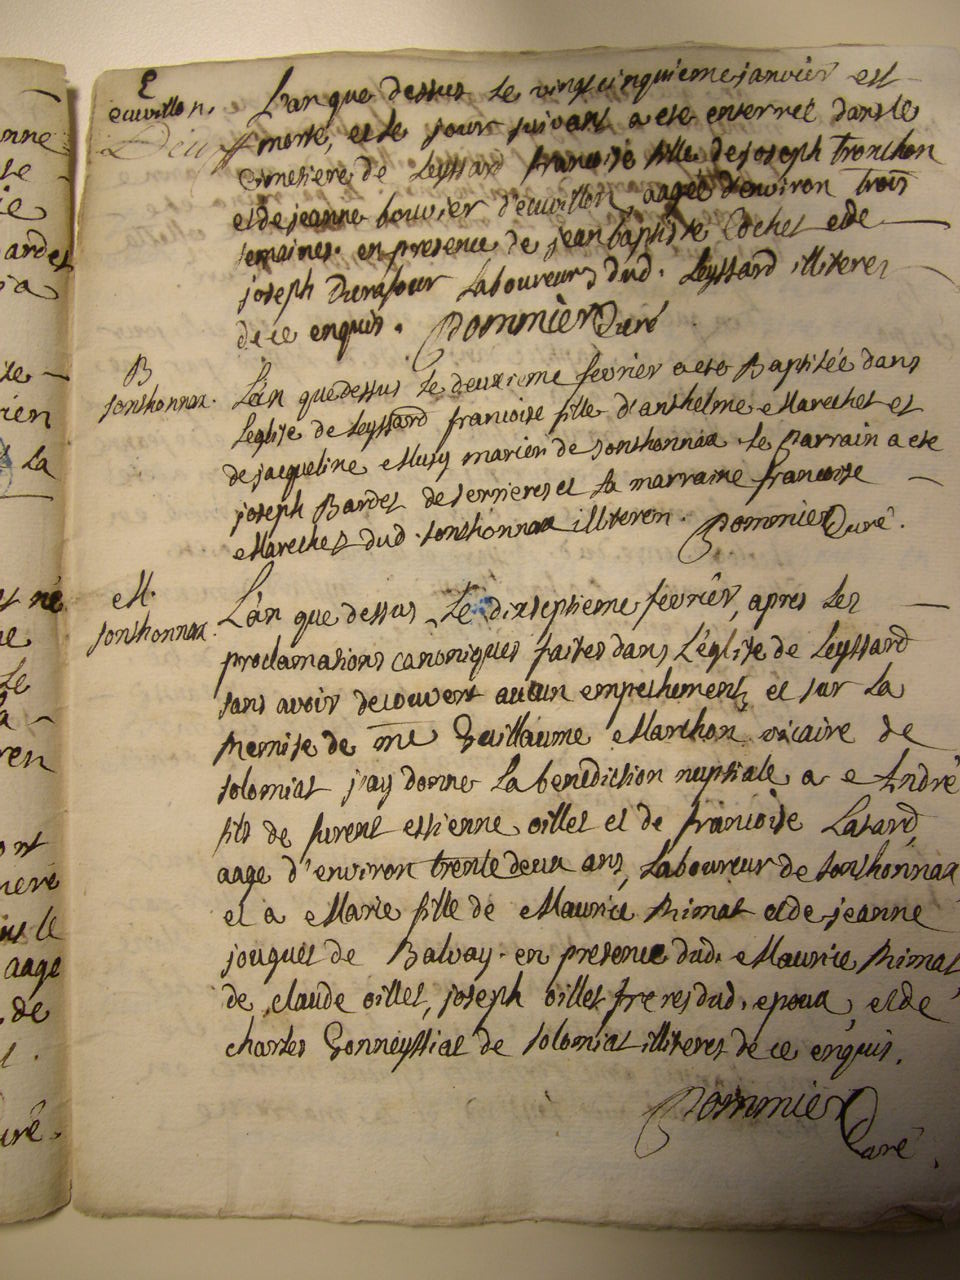 E
euvillon.
L'an que dessus le vingt cinquieme janvier est
morte, et le jour suivant a ete enterreé dans le
cimetiere de Leyssard francoise fille de joseph Tronchon
et de jeanne bouvier d'euvillon, aageé d'environ trois
semaines. en presence de jean baptiste Cochet et de
joseph Durafour Laboureurs dud. Leyssard illiteres
de ce enquis. Pommier Curé
B
sonthonnax.
L'an que dessus le deuxieme fevrier a ete Baptiseé dans
L'eglise de Leyssard francoise fille d'anthelme Marechet et
de jacqueline mariér de sonthonnax. le Parrain a ete
joseph Bardet de serrieres et la marraine francoise
Marechet dud. sonthonnax illiteren. Pommier Curé.
M.
sonthonnax.
L'an que dessus le dixseptieme fevriér, apres les
proclamations canoniques faites dans L'église de Leyssard
sans avoir decouvert aucun empechement, et sur la
remise de me Guillaume Marchon vicaire de
solomiat j'ay donné La benediction nuptiale a André
fils de furent estienne oillet et de francoise Lasard,
aage d'environ trente deux ans, Laboureur de sonthonnax
et a Marie fille de Maurice Rimat et de jeanne
jouguet de Balvay. en presence dud. Maurice Rimat,
de claude oillet, joseph oillet freres dud. epoux, et de
charles Gonneyssiat de solomiat illiteres de ce enquis.
Pommier
Curé.